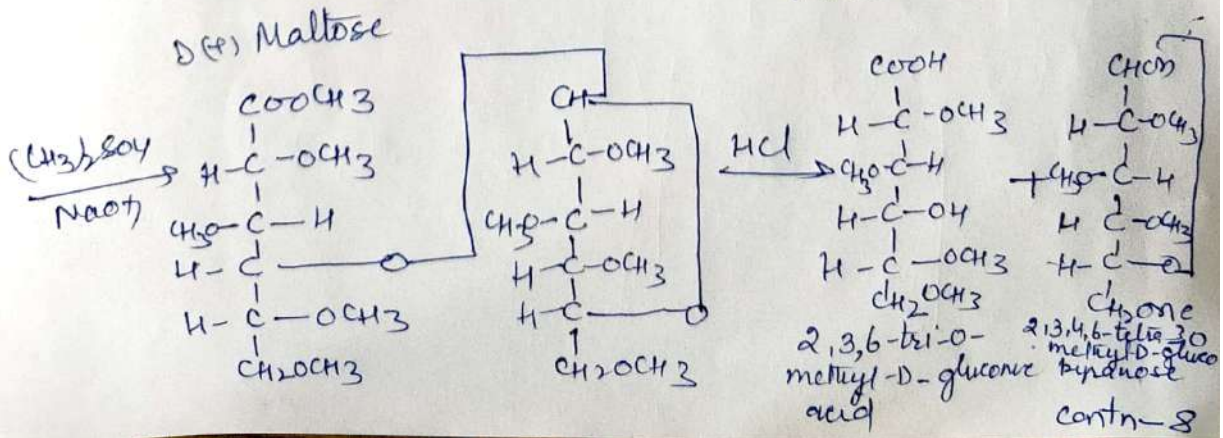 D(+) Maltose
(CH3)2SO4
NaOH
COOCH3
H-C-OCH3
CH3O-C-H
H-C-O
H-C-OCH3
CH2OCH3
CH
H-C-OCH3
CH3O-C-H
H-C-OCH3
H-C-O
CH2OCH3
HCl
COOH
H-C-OCH3
CH3O-C-H
H-C-OH
H-C-OCH3
CH2OCH3
2,3,6-tri-O-
methyl-D-gluconic
acid
+
H-C-OCH3
CH3O-C-H
H C-OCH3
H-C-O
2,3,4,6-tetra
methyl-D-gluco
contn-8